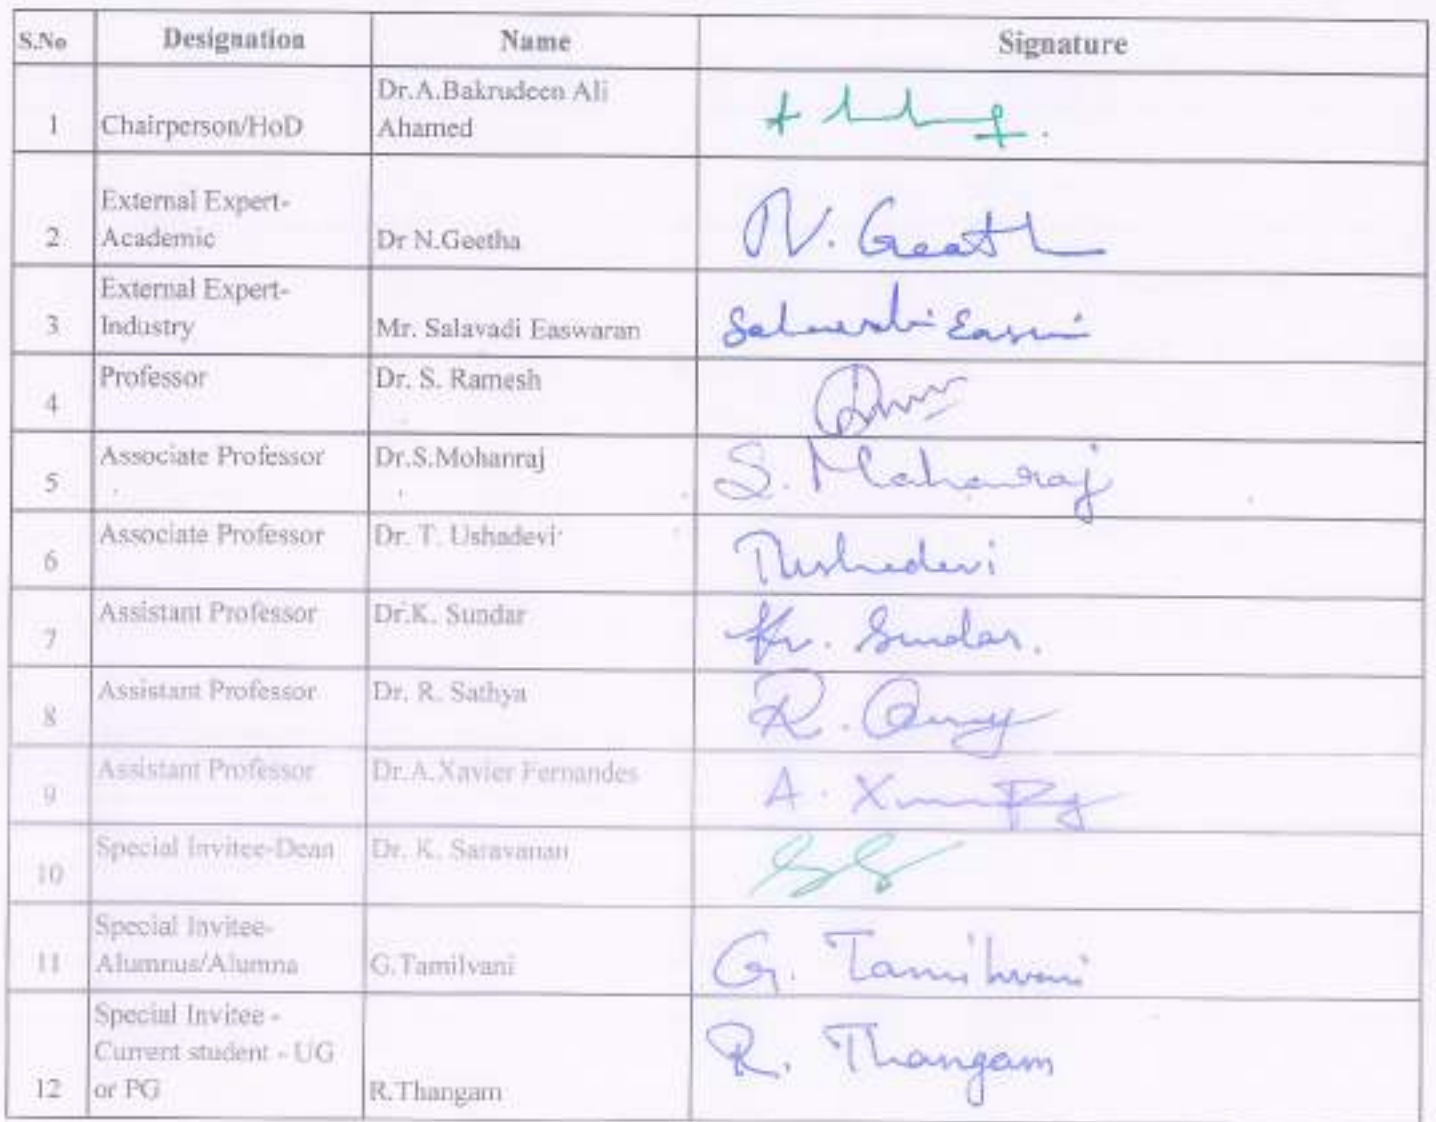 S.No Designation Name Signature
Dr.A.Bakrudeen Ali
1 Chairperson/HoD Ahamed
External Expert-
2 Academic Dr N.Geetha N. Geeth
External Expert-
3 Industry Mr. Salavadi Easwaran
Professor Dr. S. Ramesh
4
Associate Professor Dr.S.Mohanraj S. Mohanraj
5
Associate Professor Dr. T. Ushadevi Tushadevi
6
Assistant Professor Dr.K. Sundar Kr. Sundar.
7
Assistant Professor Dr. R. Sathya R.
8
Assistant Professor Dr.A.Xavier Fernandes A.
9
Special Invitee-Dean Dr. K. Saravanan
10
Special Invitee-
11 Alumnus/Alumna G.Tamilvani G. Tamilvani
Special Invitee -
Current student - UG R. Thangam
12 or PG R.Thangam